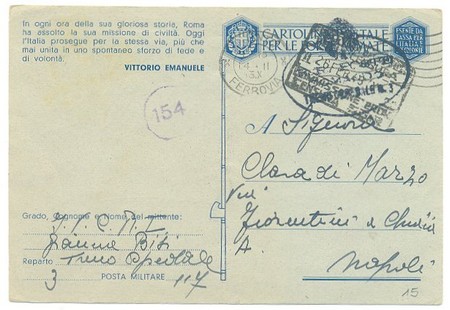 In ogni ora della sua gloriosa storia, Roma
ha assolto la sua missione di civiltà. Oggi
l'Italia prosegue per la stessa via, più che
mai unita in uno spontaneo sforzo di fede e
di volontà.
VITTORIO EMANUELE
CARTOLINA POSTALE
PER LE FORZE ARMATE
ESENTE DA
TASSA PER
L'ITALIA E
COLONIE
FERROVIA
154
A Signora
Clara di Marzo
Via
Fiorentini
A.
Napoli
Grado, Cognome e Nome del mittente:
Reparto Treno Ospedale
3 POSTA MILITARE 117
15